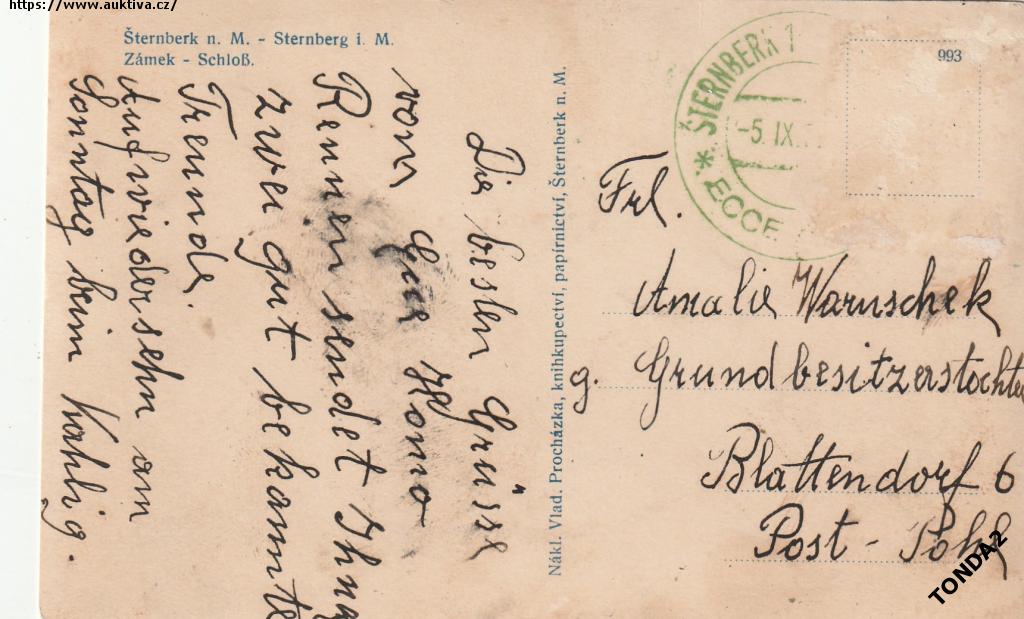 https://www.auktiva.cz/
Šternberk n. M. - Sternberg i. M.
Zámek - Schloß.
Die besten Grüsse
vom
Rennen sendet Ihnen
zwei gut bekannte
Freunde.
Aufwiedersehn am
Sonntag beim Kahlig.
Nákl. Vlad. Procházka, knihkupectví, papírnictví, Šternberk n. M.
ŠTERNBERK 1
-5. IX.
* ECCE
993
Frl.
Amalie Waruschek
g. Grundbesitzerstochter
Blattendorf 6
Post -
TONDA2